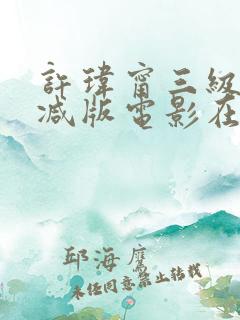 許瑋甯三級
减版電影在
邱海鷹
未經同意禁止转载